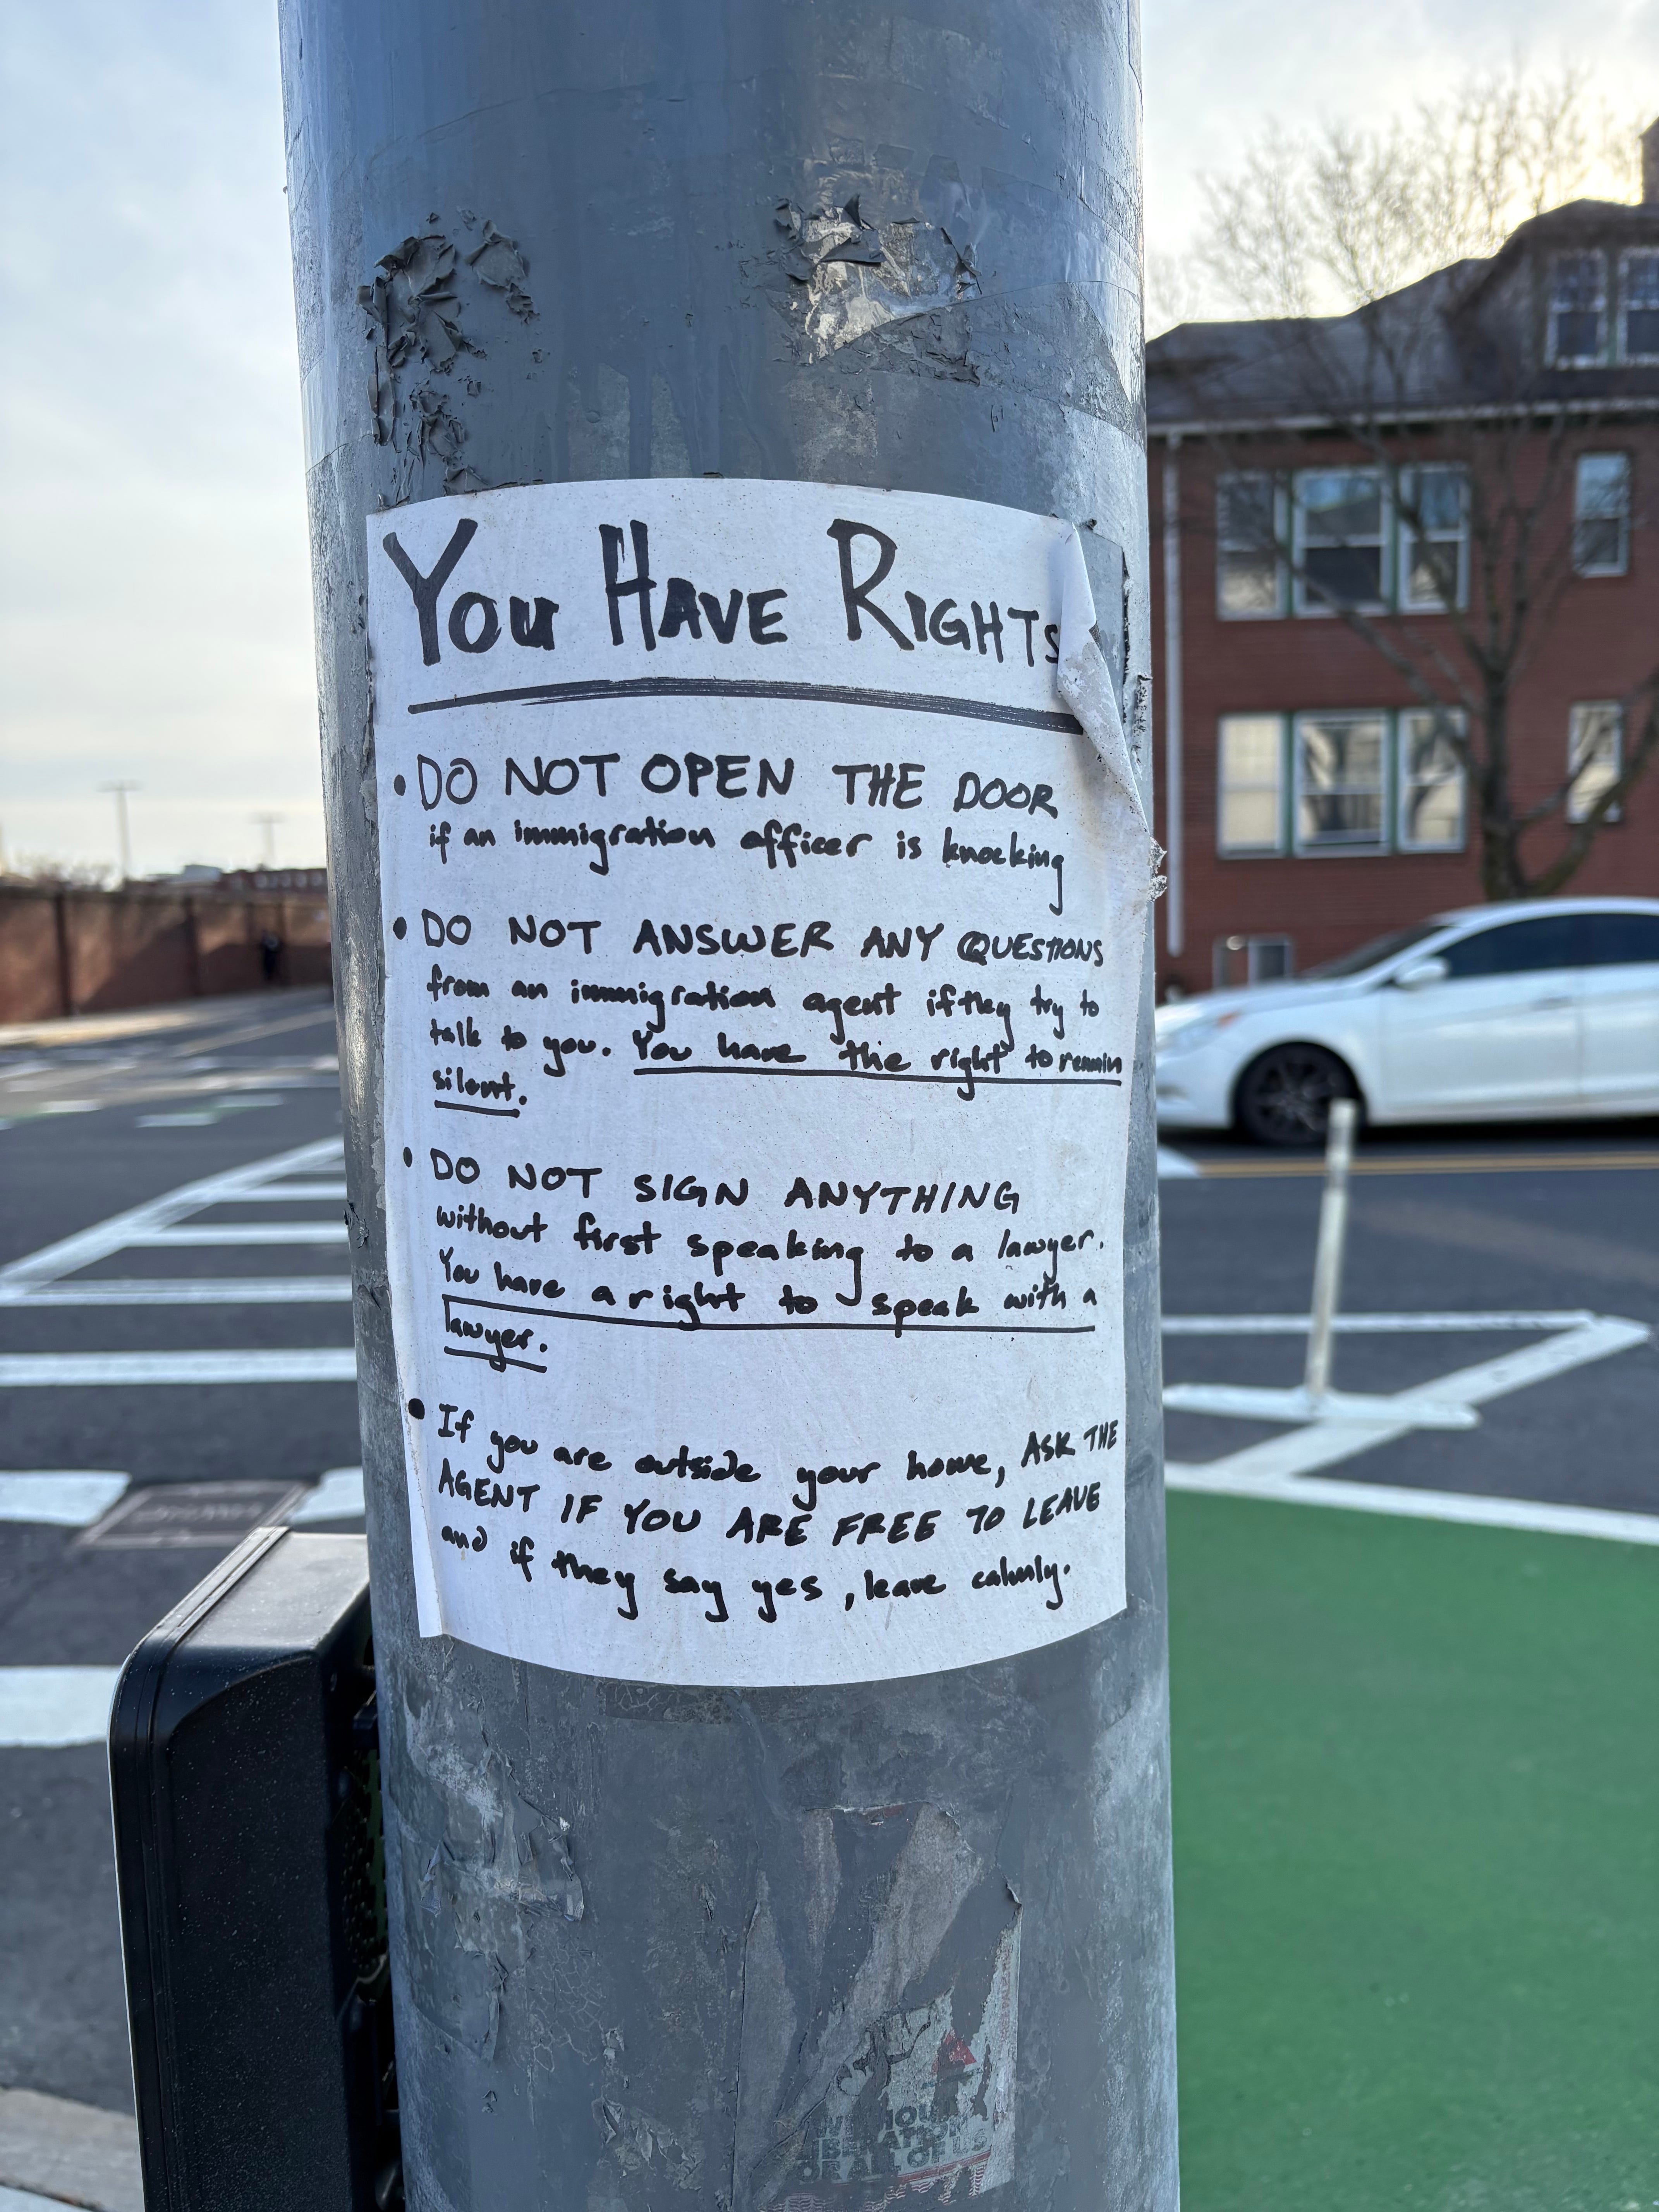 You Have Rights
• DO NOT OPEN THE DOOR
if an immigration officer is knocking
• DO NOT ANSWER ANY QUESTIONS
from an immigration agent if they try to
talk to you. You have the right to remain
silent.
• DO NOT SIGN ANYTHING
without first speaking to a lawyer.
You have a right to speak with a
lawyer.
• If you are outside your home, ASK THE
AGENT IF YOU ARE FREE TO LEAVE
and if they say yes, leave calmly.